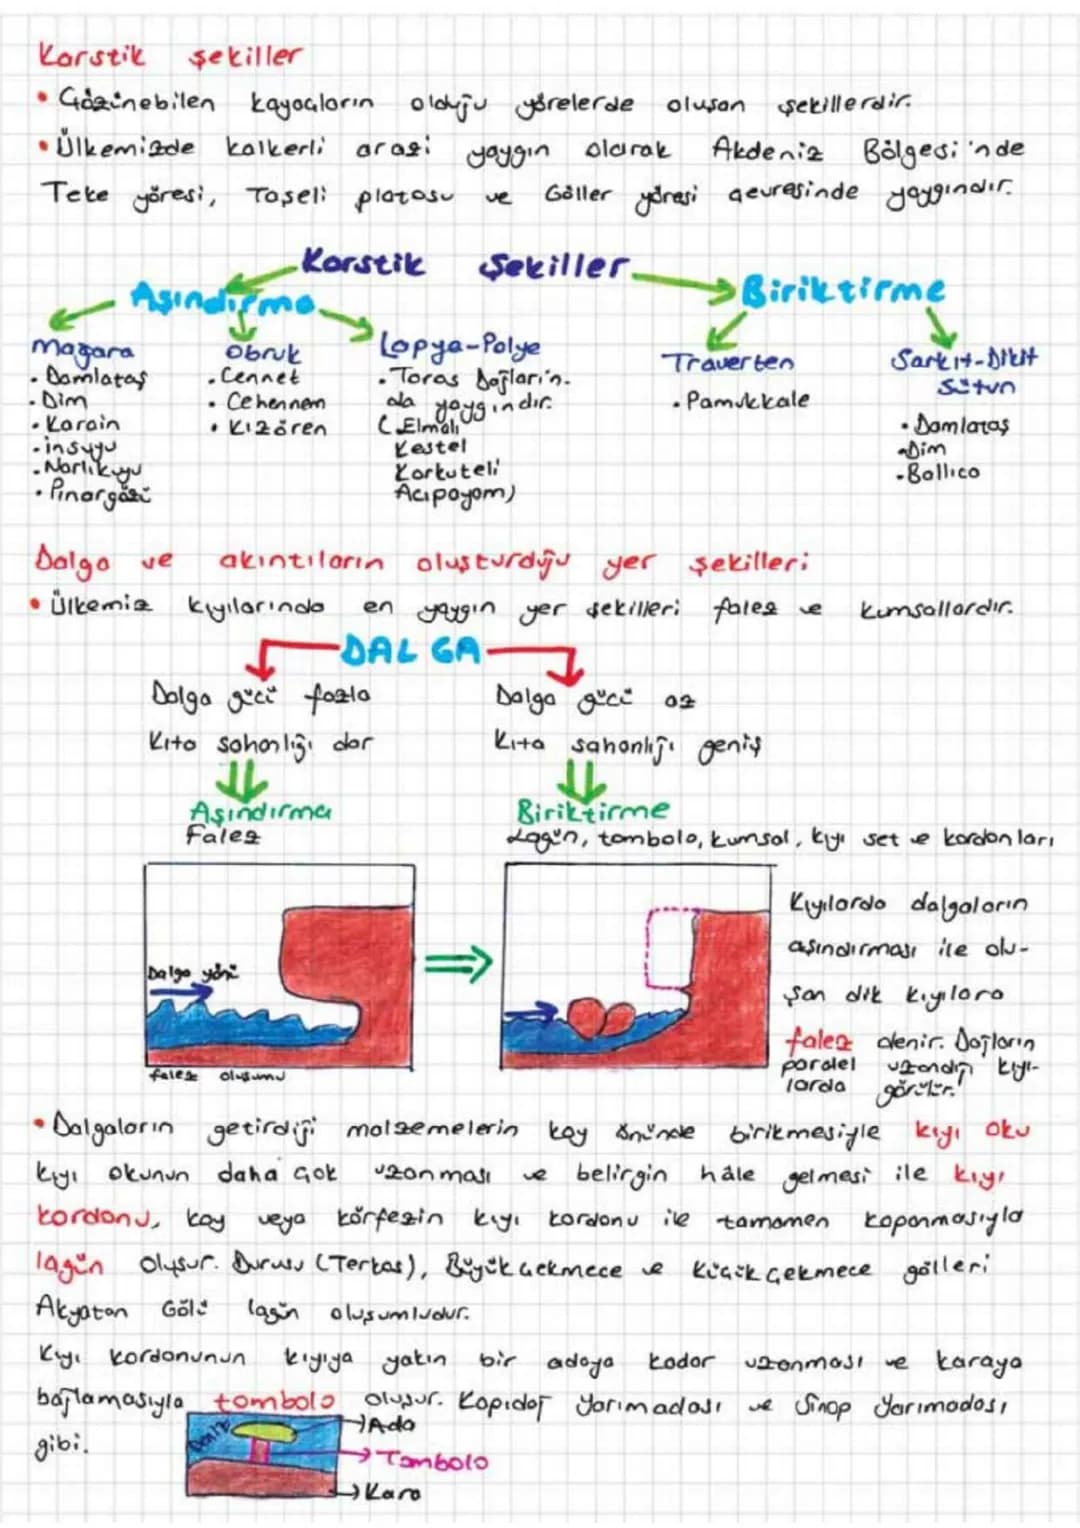 Karstik şekiller
• Çözünebilen kayaçların olduğu yörelerde oluşan şekillerdir.
• Ülkemizde kalkerli arazi yaygın olarak Akdeniz Bölgesi'nde
Teke yöresi, Taşeli platosu ve Göller yöresi çevresinde yaygındır.
Karstik Şekiller
Aşındırma
Biriktirme
Mağara
• Damlataş
• Dim
• Karain
• insuyu
• Narlıkuyu
• Pınargözü
Obruk
• Cennet
• Cehennem
• Kızören
Lapya-Polye
• Toros Dağların-
da yaygındır.
(Elmalı
Kestel
Korkuteli
Acıpayam)
Traverten
• Pamukkale
Sarkıt-Dikit
Sütun
• Damlataş
• Dim
• Ballıca
Dalga ve akıntıların oluşturduğu yer şekilleri
• Ülkemiz kıyılarında en yaygın yer şekilleri falez ve kumsallardır.
DALGA
Dalga gücü fazla
Kıta sahanlığı dar
Aşındırma
Falez
Dalga gücü az
Kıta sahanlığı geniş
Biriktirme
Lagün, tombolo, kumsal, kıyı set ve kordonları
Dalga yönü
falez oluşumu
Kıyılarda dalgaların
aşındırması ile olu-
şan dik kıyılara
falez denir. Dağların
paralel uzandığı kıyı-
larda görülür.
• Dalgaların getirdiği malzemelerin koy önünde birikmesiyle kıyı oku
kıyı okunun daha çok uzanması ve belirgin hâle gelmesi ile kıyı
kordonu, koy veya körfezin kıyı kordonu ile tamamen kapanmasıyla
lagün oluşur. Durusu (Terkos), Büyükçekmece ve Küçükçekmece gölleri
Akyatan Gölü lagün oluşumludur.
Kıyı kordonunun kıyıya yakın bir adaya kadar uzanması ve karaya
bağlamasıyla tombolo oluşur. Kapıdağ Yarımadası ve Sinop Yarımadası
gibi.
Deniz
Ada
Tombolo
Kara